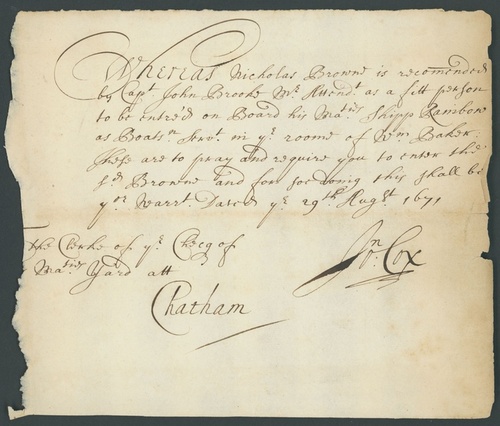 Whereas Nicholas Browne is recomended
by Capt John Brooke Mr Attendt as a fitt person
to be entred on Board his Maties Shipp Rainbow
as Boatsn Servt in ye roome of Wm Baker.
These are to pray and require you to enter the
sd Browne and for soe doing this shall be
yor Warrt. Dated ye 29th Augst 1671
the Clerke of ye Checq of
Maties Yard att
Chatham
Jon. Cox